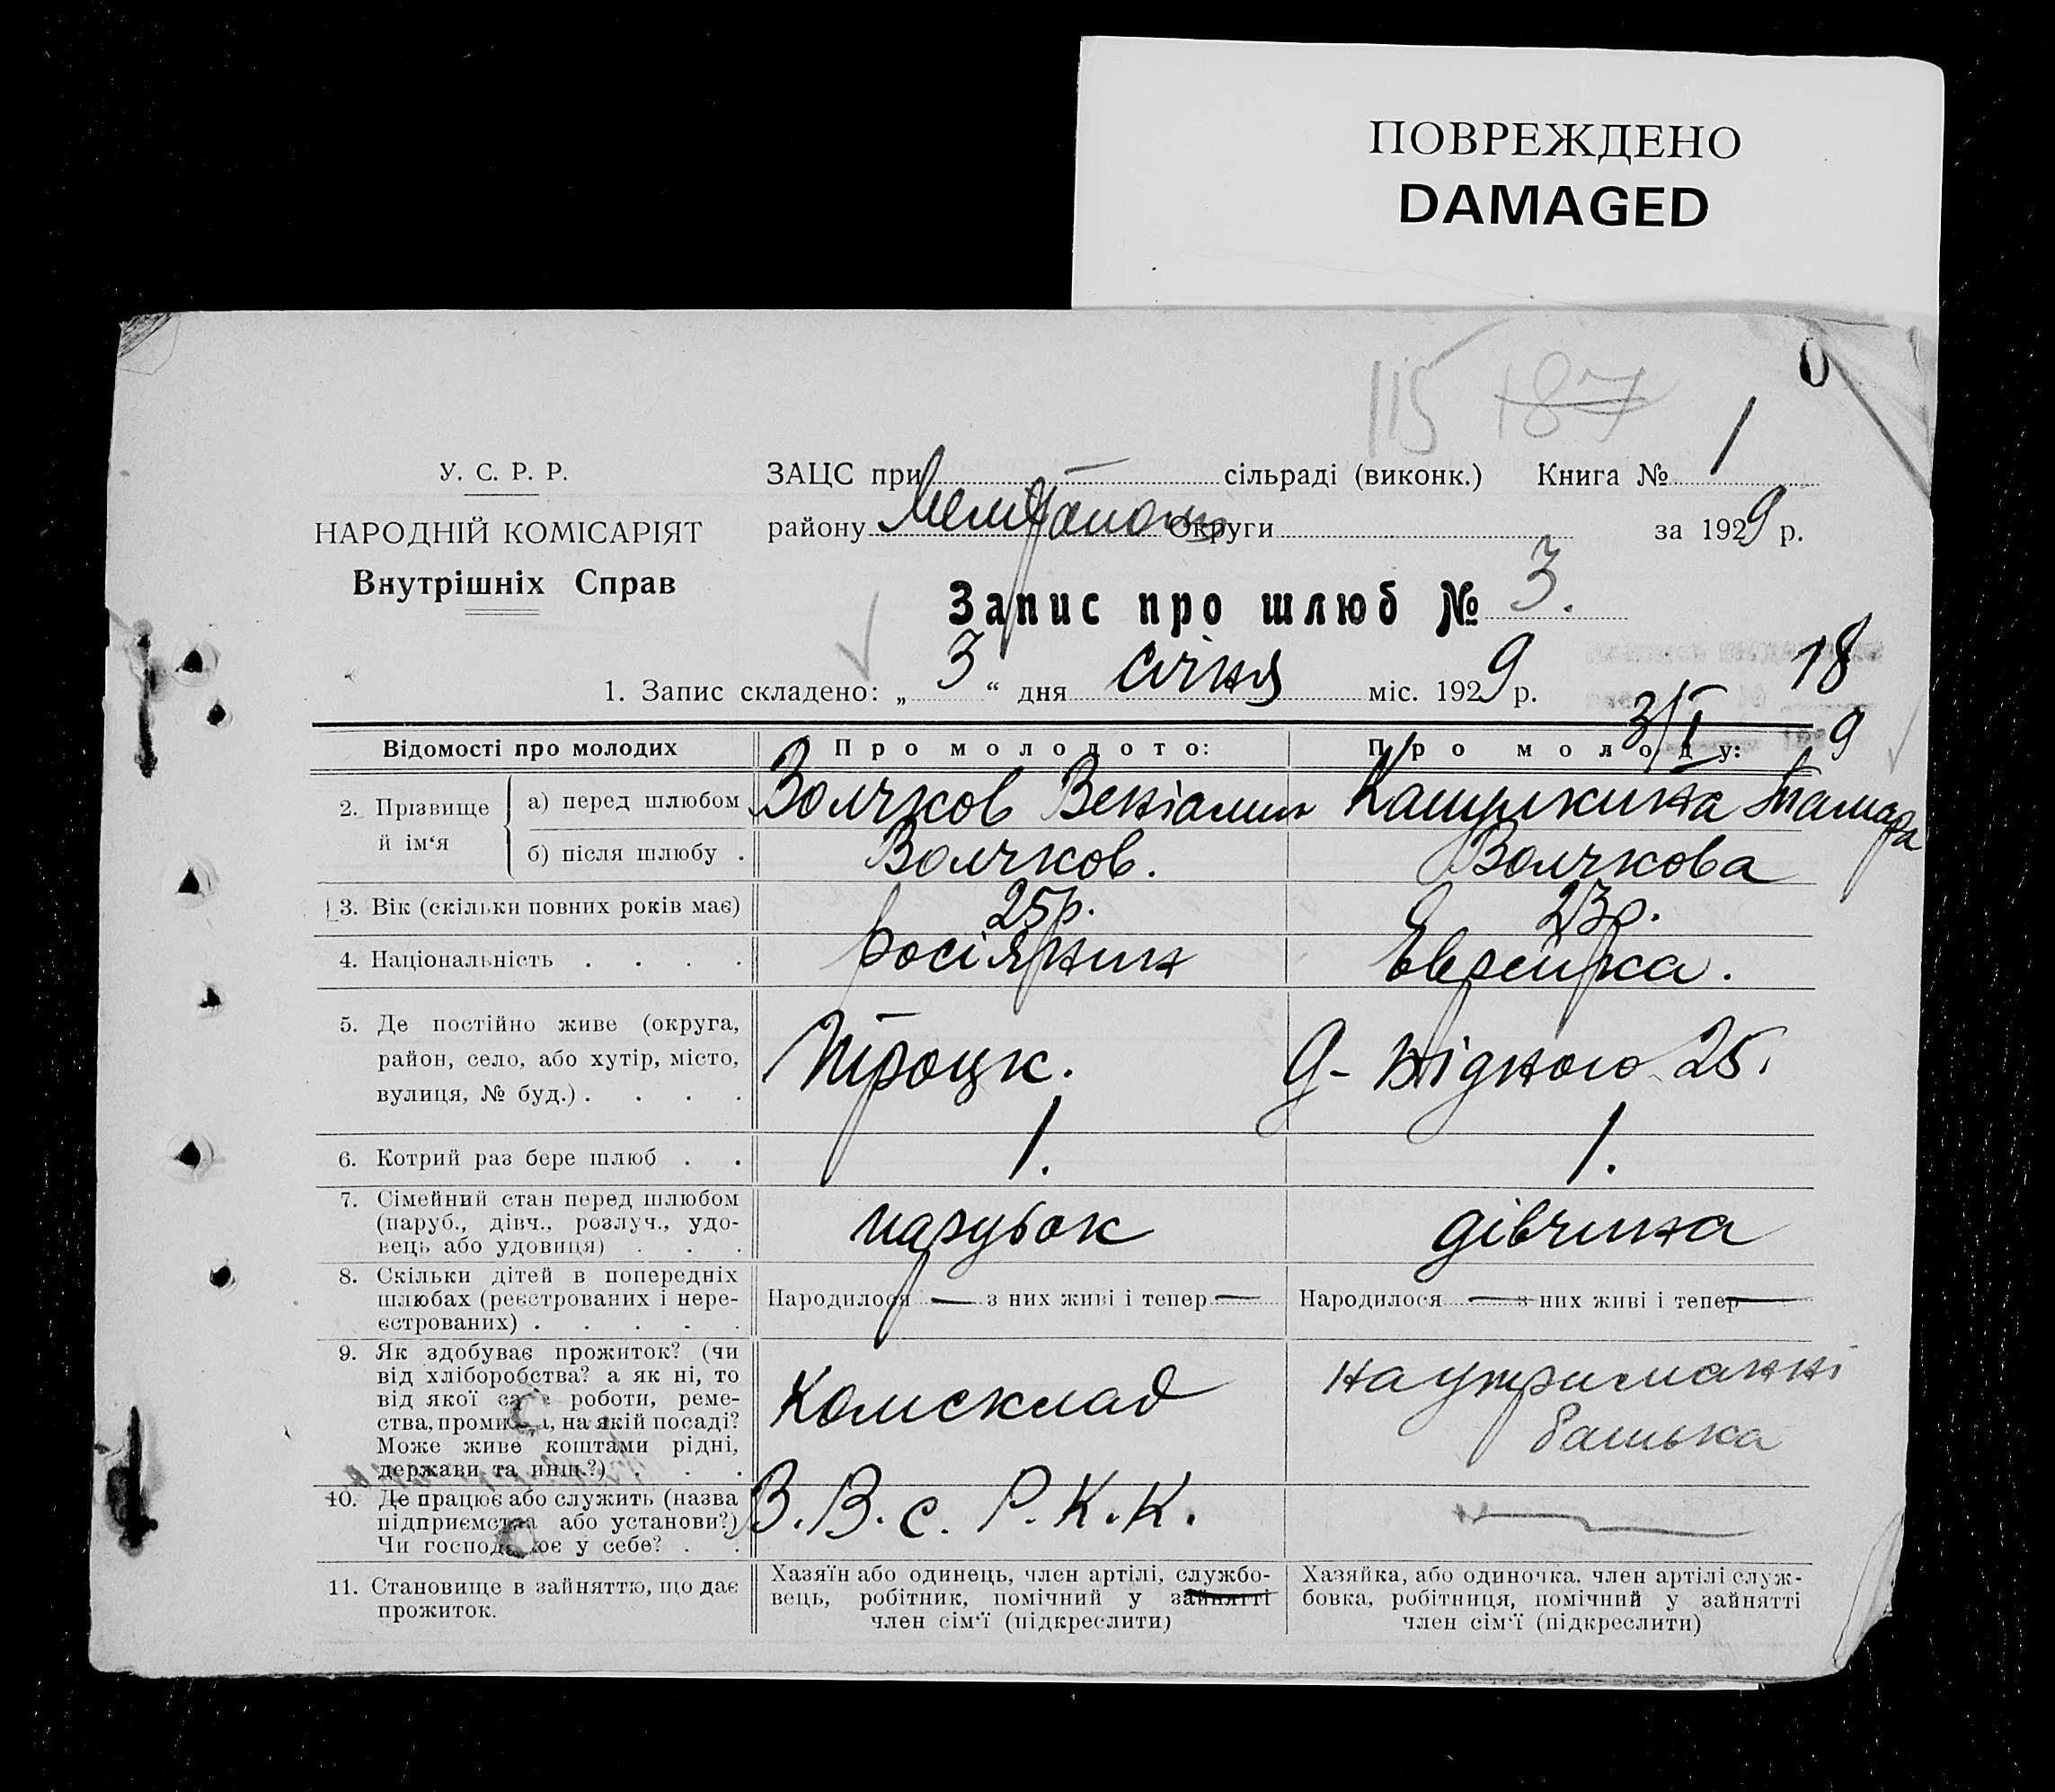 ПОВРЕЖДЕНО
DAMAGED
115 187
У. С. Р. Р.
НАРОДНІЙ КОМІСАРІЯТ
Внутрішніх Справ
ЗАЦС при — сільраді (виконк.) Книга № 1
району Мелітополь Округи за 1929 р.
Запис про шлюб № 3.
1. Запис складено: „ 3 “ дня січня міс. 1929 р.
18
3/I 9
Відомості про молодих Про молодого: Про молоду:
2. Прізвище й ім‘я
а) перед шлюбом Волчков Веніамин Тамара
б) після шлюбу . Волчков. Волчкова
3. Вік (скільки повних років має) 25р. 23р.
4. Національність . . . . росіянин Еврейка.
5. Де постійно живе (округа,
район, село, або хутір, місто,
вулиця, № буд.) . . . .
Троцк. Д-Бідного 25.
6. Котрий раз бере шлюб . . 1. 1.
7. Сімейний стан перед шлюбом
(паруб., дівч., розлуч., удо-
вець або удовиця) . . .
парубок дівчина
8. Скільки дітей в попередніх
шлюбах (реєстрованих і нере-
єстрованих) . . . . .
Народилося — з них живі і тепер —
Народилося — з них живі і тепер —
9. Як здобуває прожиток? (чи
від хліборобства? а як ні, то
від якої саме роботи, реме-
ства, промисла, на якій посаді?
Може живе коштами рідні,
держави та инш.?) . . .
Комсклад
на утриманні
батька
10. Де працює або служить (назва
підприємства або установи?)
Чи господарює у себе? . .
В. В. с. Р. К. К.
—
11. Становище в зайняттю, що дає
прожиток.
Хазяїн або одинець, член артілі, службо-
вець, робітник, помічний у зайнятті
член сім‘ї (підкреслити)
Хазяйка, або одиночка. член артілі служ-
бовка, робітниця, помічний у зайнятті
член сім‘ї (підкреслити)